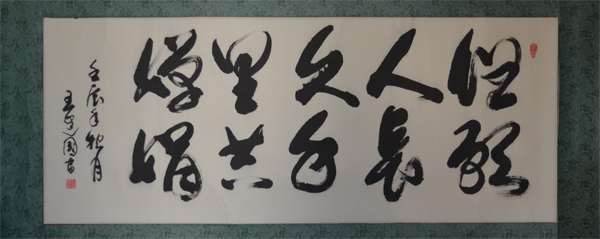 但願
人長
久千
里共
嬋娟
壬辰年秋月
王國書